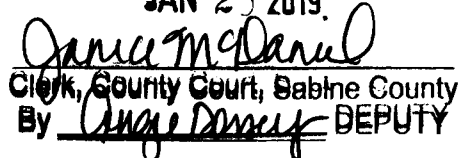 JAN 25 2019.
Janice McDaniel
Clerk, County Court, Sabine County
By Angie Dossey DEPUTY